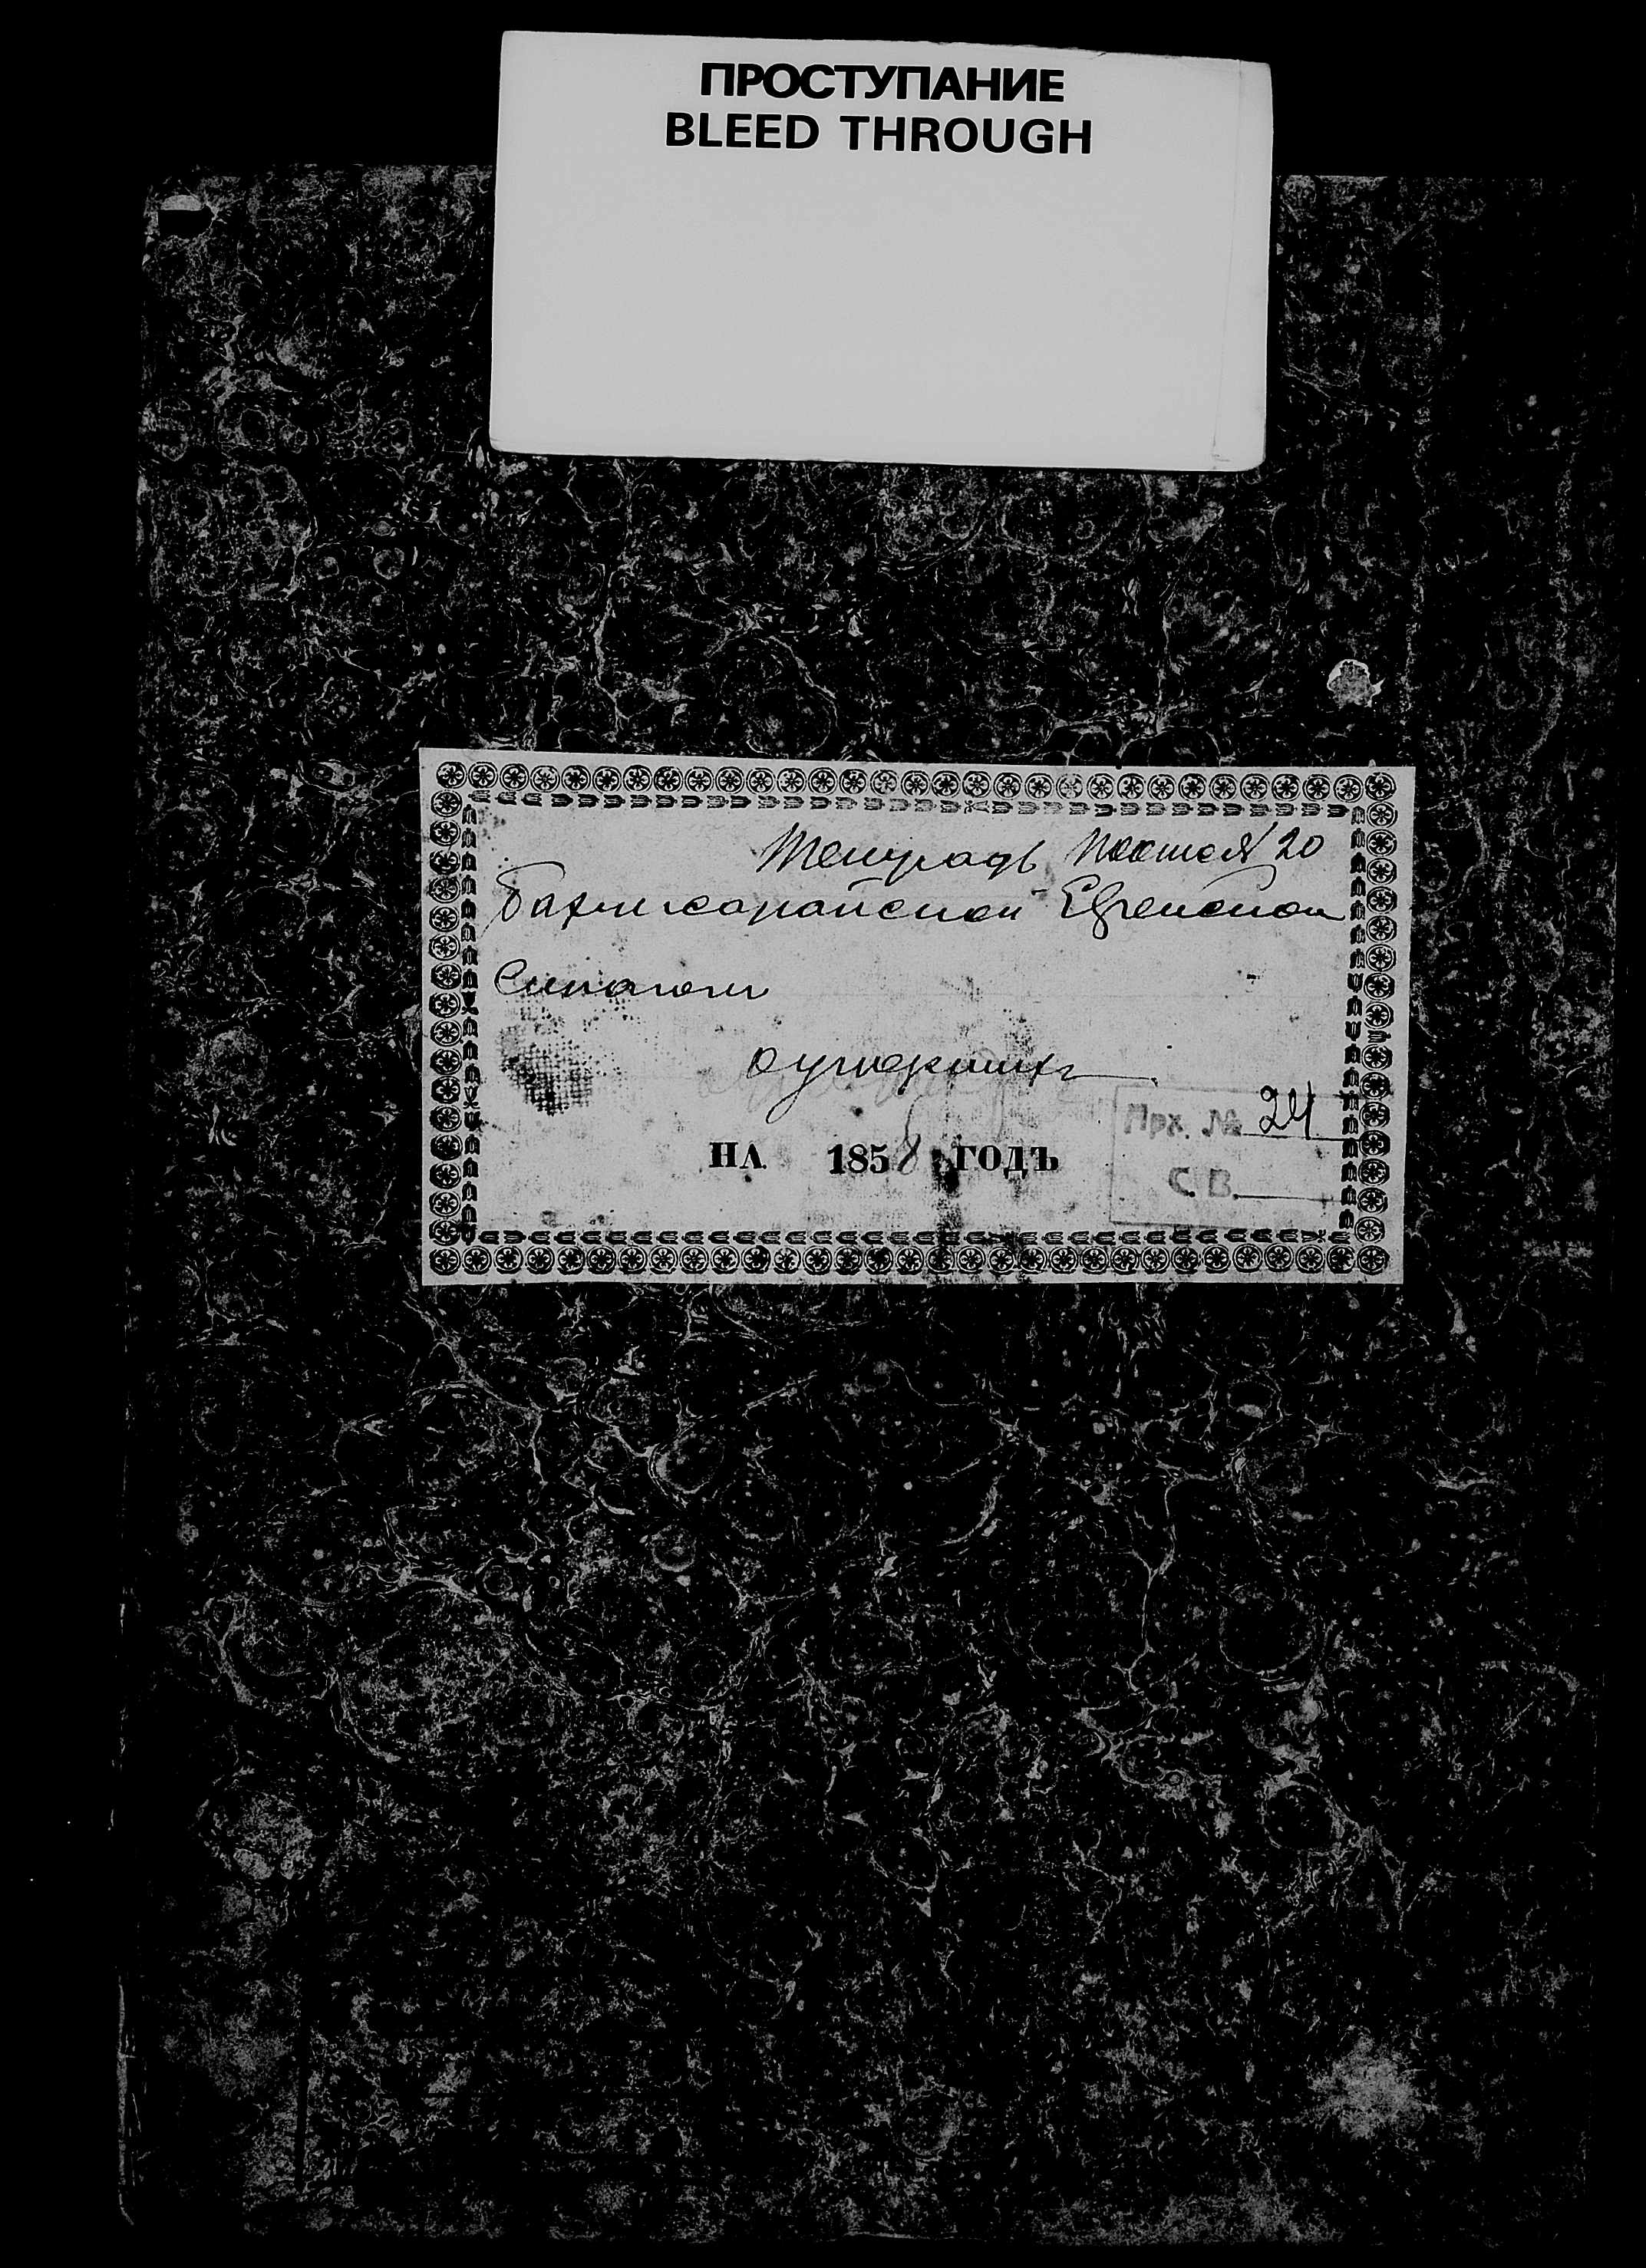 ПРОСТУПАНИЕ
BLEED THROUGH
Тетрадь №20
Бахчисарайской Еврейской
Синагоги
о умерших
НА 1858 ГОДЪ
Прх. № 24
С. В.